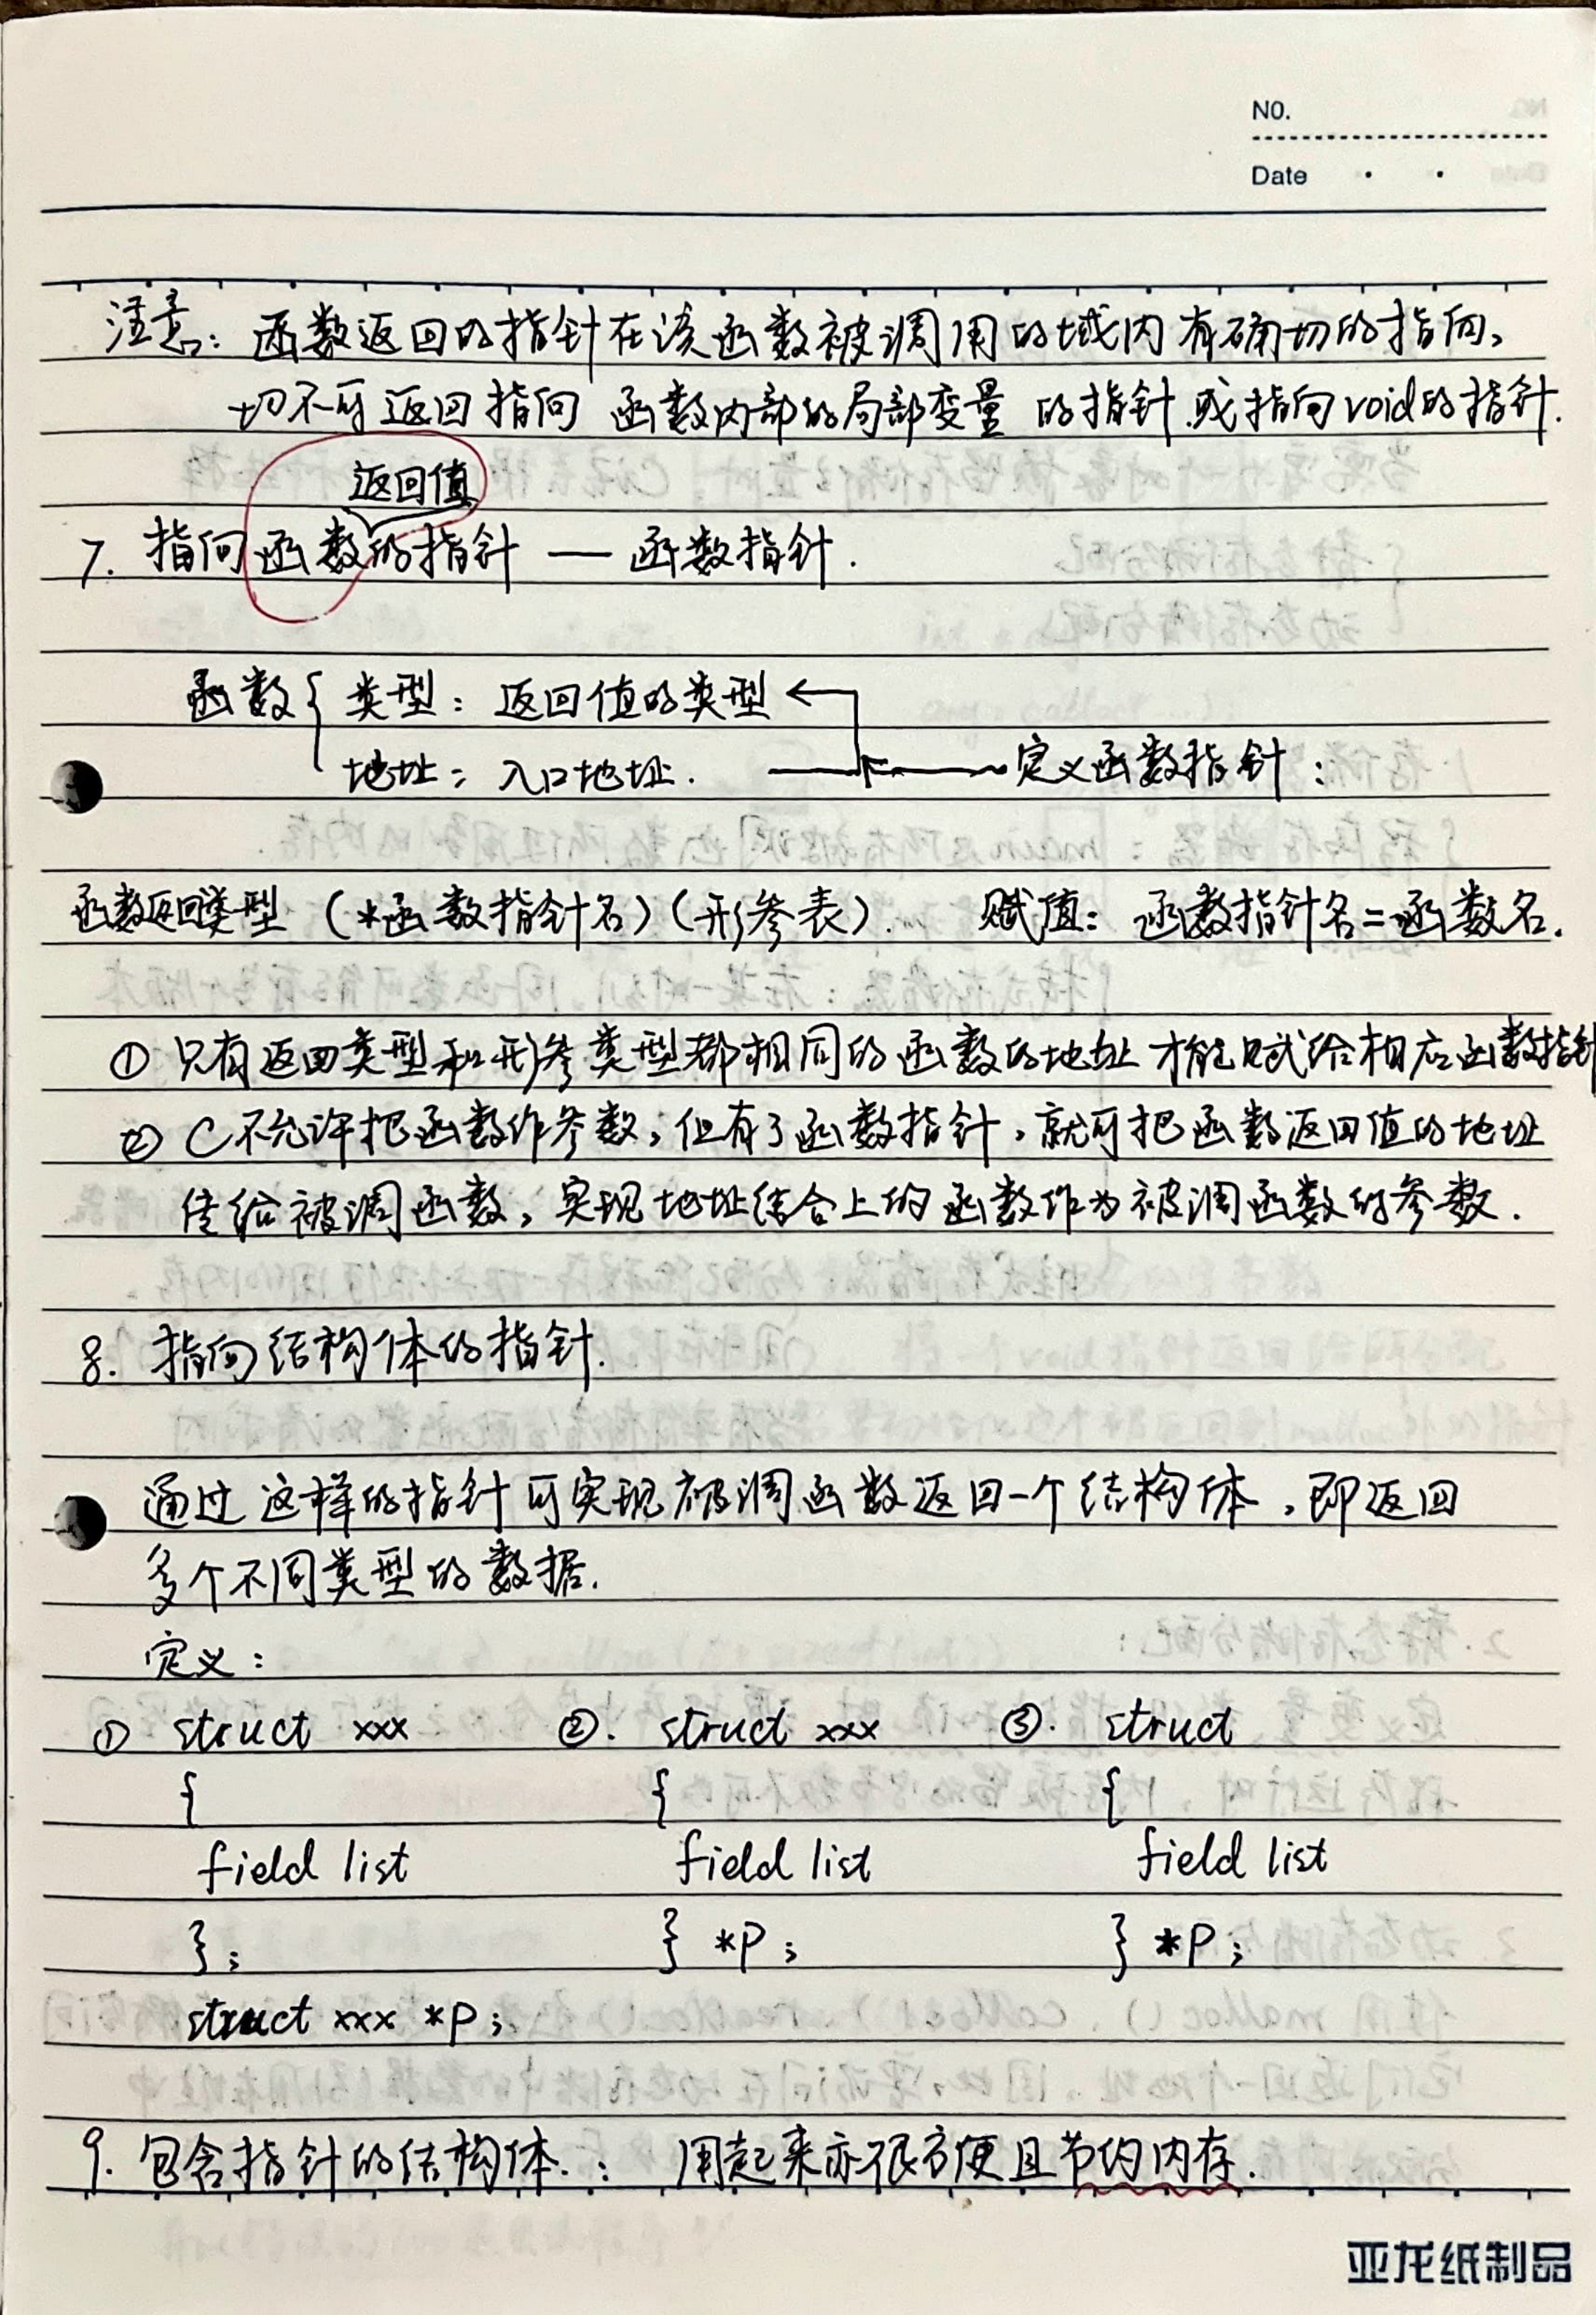 NO.
Date
注意：函数返回的指针在该函数被调用的域内有确切的指向，
切不可返回指向函数内部的局部变量的指针或指向void的指针.
返回值
7. 指向函数的指针 — 函数指针.
函数{ 类型：返回值的类型
地址：入口地址. 定义函数指针：
函数返回类型 (*函数指针名)(形参表). 赋值：函数指针名=函数名.
① 只有返回类型和形参类型都相同的函数的地址才能赋给相应函数指针
② C不允许把函数作参数，但有了函数指针，就可把函数返回值的地址
传给被调函数，实现地址结合上的函数作为被调函数的参数.
8. 指向结构体的指针.
通过这样的指针可实现被调函数返回一个结构体，即返回
多个不同类型的数据.
定义：
① struct xxx ②. struct xxx ③. struct
{ { {
field list field list field list
}; } *P; } *P;
struct xxx *P;
9. 包含指针的结构体.：用起来亦很方便且节约内存.
亚龙纸制品